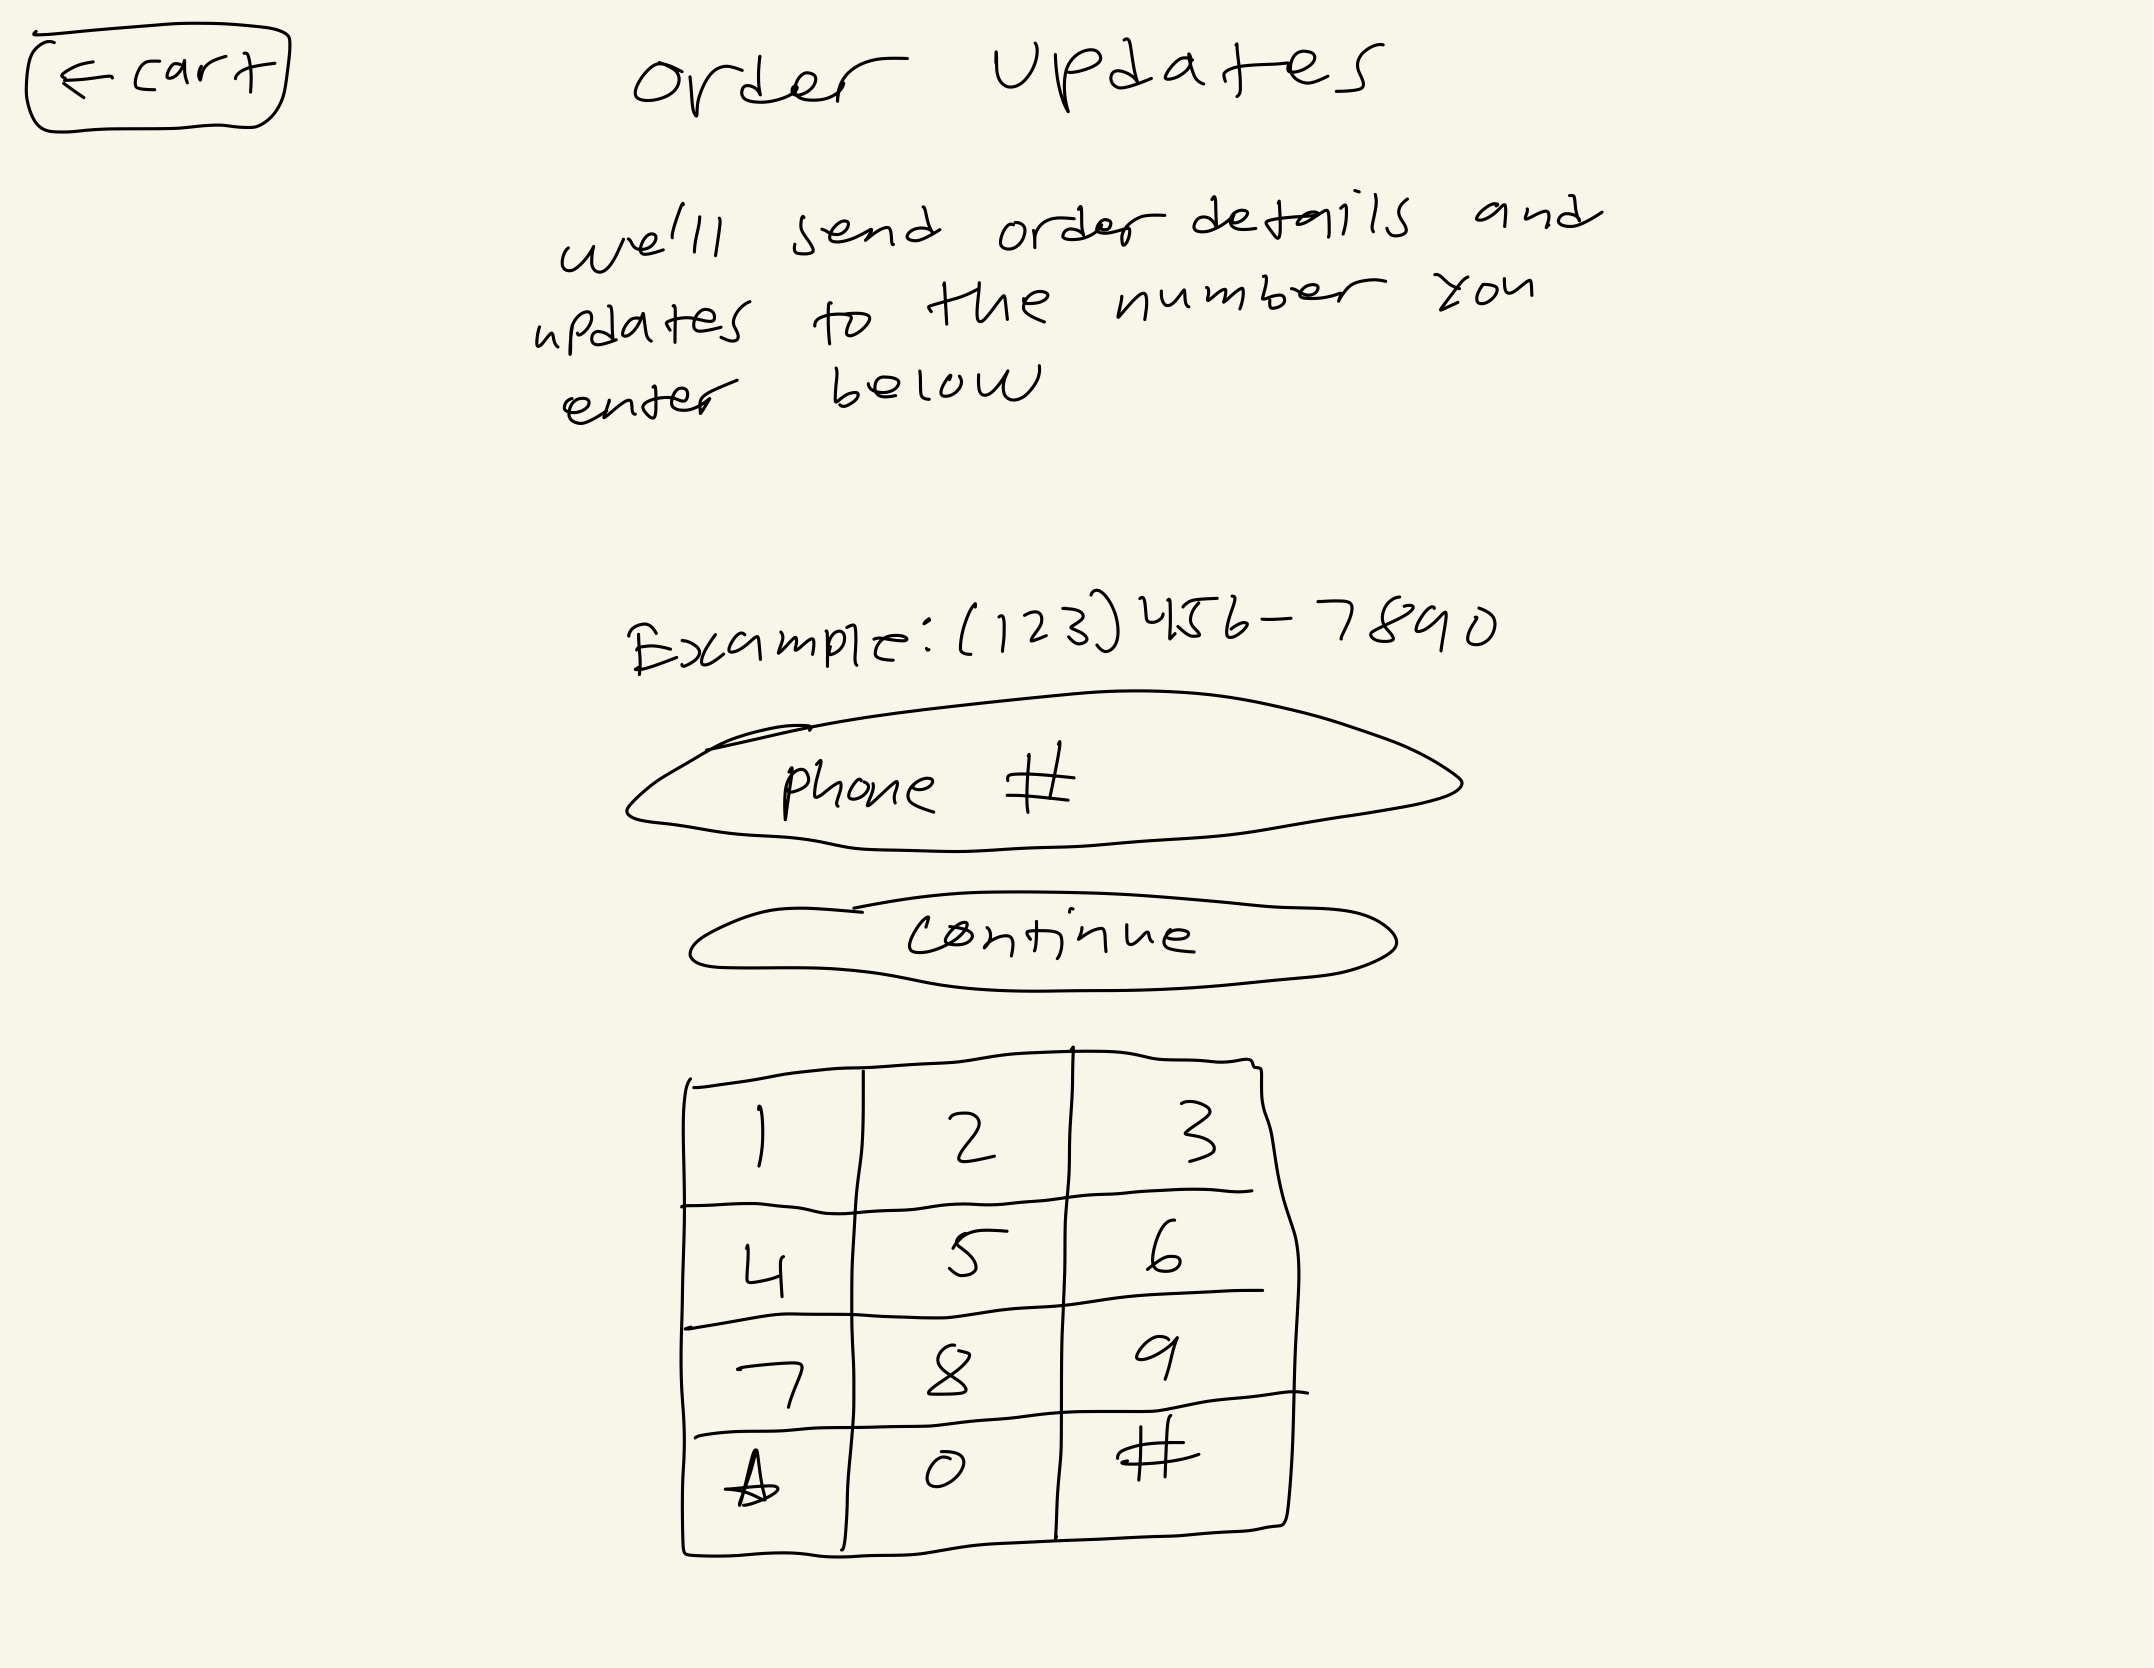 ← cart
order updates
we'll send order details and
updates to the number you
enter below
Example: (123) 456-7890
phone #
continue
1 2 3
4 5 6
7 8 9
☆ 0 #